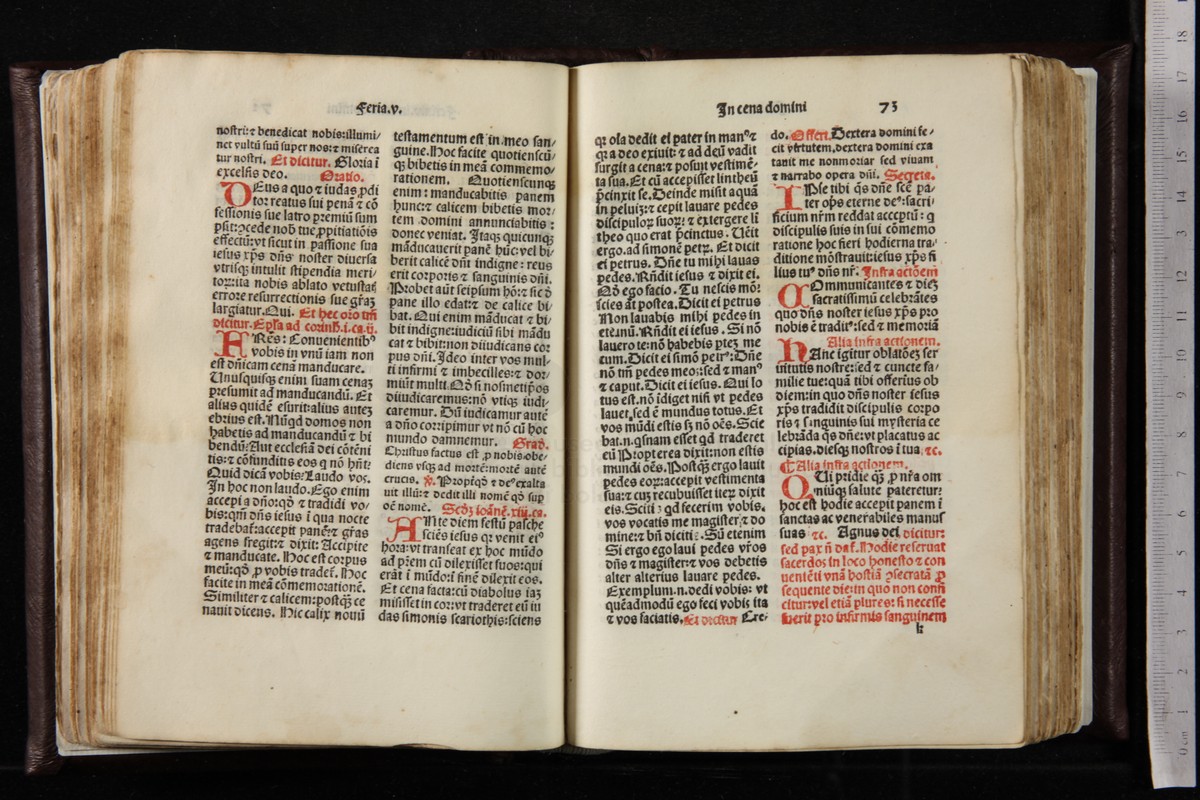 Feria.v.
nostri:⁊ benedicat nobis:illumi/
net vultũ suũ super nos:⁊ miserea
tur nostri. Et dicitur. Gloria ī
excelsis deo. Oratio.
DEus a quo ⁊ iudas ꝓdi
tor reatus sui penã ⁊ cõ
fessionis sue latro premiũ sum
effectũ:vt sicut in passione sua
iesus xp̃s dñs noster diuersa
vtrisqꝫ intulit stipendia meri/
torꝝ:ita nobis ablato vetustat̃
errore resurrectionis sue gr̃aꝫ
largiatur.Qui. Et hec oro tm̃
dicitur.Ep̃la ad corinth.i.ca.ij.
FRr̃es: Conuenientibꝰ
vobis in vnũ iam non
est dñicam cenã manducare.
Unusquisqꝫ enim suam cenaꝫ
presumit ad manducandũ. Et
alius quidẽ esurit:alius auteꝫ
ebrius est.Nũqd domos non
habetis ad manducandũ ⁊ bi
bendũ:Aut ecclesiã dei cõtẽni
tis:⁊ cõfunditis eos q̃ nõ hñt:
Quid dicã vobis:Laudo vos.
In hoc non laudo.Ego enim
accepi a dño:qd̃ ⁊ tradidi vo/
bis:qm̃ dñs iesus ĩ qua nocte
tradebat̃:accepit panẽ:⁊ gr̃as
agens fregit:⁊ dixit: Accipite
⁊ manducate. Hoc est corpus
meũ:qd̃ ꝓ vobis tradet̃. Hoc
facite in meã cõmemorationẽ.
Similiter ⁊ calicem:postqꝫ ce
nauit dicens. Hic calix nouũ
testamentum est in meo san/
guine.Hoc facite quotienscũ/
qꝫ bibetis in meã commemo/
rationem. Quotienscunqꝫ
enim : manducabitis panem
hunc:⁊ calicem bibetis mor/
tem domini annunciabitis :
donec veniat. Itaqꝫ quicunqꝫ
mãducauerit panẽ hũc:vel bi/
berit calicẽ dñi indigne : reus
erit corporis ⁊ sanguinis dñi.
Probet aũt seipsum hõ:⁊ sic d̃
pane illo edat:⁊ de calice bi/
bat.Qui enim mãducat ⁊ bi/
bit indigne:iudiciũ sibi mãdu
cat ⁊ bibit:non diiudicans cor
pus dñi.Ideo inter vos mul/
ti infirmi ⁊ imbecilles:⁊ dor/
miũt multi.Qd̃ si nosmetip̃os
diiudicaremus:nõ vtiqꝫ iudi/
caremur. Dũ iudicamur autẽ
a dño corripimur vt nõ cũ hoc
mundo damnemur. Grad.
Christus factus est ꝓ nobis:obe/
diens vsqꝫ ad mortẽ:mortẽ autẽ
crucis. ℣. Propt̃qd̃ ⁊ deꝰ exalta
uit illũ:⁊ dedit illi nomẽ qd̃ sup
oẽ nomẽ. Scd̃ꝫ ioãnẽ.xiij.ca.
ANte diem festũ pasche
sciẽs iesus qꝛ venit eiꝰ
hora:vt transeat ex hoc mũdo
ad pr̃em cũ dilexisset suos:qui
erãt ĩ mũdo:ĩ finẽ dilexit eos.
Et cena facta:cũ diabolus iaꝫ
misisset in cor:vt traderet eũ iu
das simonis scariothis:sciens
In cena domini 73
qꝛ oĩa dedit ei pater in manꝰ⁊
qꝛ a deo exiuit:⁊ ad deũ vadit
surgit a cena:⁊ posuit vestimẽ/
ta sua.Et cũ accepisset lintheũ
p̃cinxit se.Deinde misit aquã
in peluiꝫ:⁊ cepit lauare pedes
discipuloꝝ suoꝝ: ⁊ extergere lĩ
theo quo erat p̃cinctus. Uẽit
ergo.ad simonẽ petꝝ. Et dicit
ei petrus. Dñe tu mihi lauas
pedes.Rñdit iesus ⁊ dixit ei.
Qd̃ ego facio. Tu nescis mõ:
scies aũt postea.Dicit ei petrus
Non lauabis mihi pedes in
eternũ.Rñdit ei iesus. Si nõ
lauero te:nõ habebis ptẽ me
cum.Dicit ei simõ petrꝰ:Dñe
nõ tm̃ pedes meos:sed ⁊ manꝰ
⁊ caput.Dicit ei iesus. Qui lo
tus est.nõ ĩdiget nisi vt pedes
lauet.sed ẽ mundus totus. Et
vos mũdi estis sꝫ nõ oẽs.Scie
bat.n.qsnam esset qd̃ traderet
eũ Propterea dixit:non estis
mundi oẽs.Postqꝫ ergo lauit
pedes eoꝝ:accepit vestimenta
sua:⁊ cuꝫ recubuisset iteꝝ dixit
eis.Scitis qd fecerim vobis.
vos vocatis me magister ⁊ do
mine:⁊ bñ dicitis. Sũ etenim
Si ergo ego laui pedes vr̃os
dñs ⁊ magister:⁊ vos debetis
alter alterius lauare pedes.
Exemplum.n.dedi vobis: vt
quẽadmodũ ego feci vobis ita
⁊ vos faciatis. Et dicitur Cre/
do. Offert. Dextera domini fe/
cit virtutem,dextera domini exa
tauit me non moriar sed viuam
⁊ narrabo opera dñi. Secreta.
IPse tibi q̃s dñe scẽ pa/
ter op̃s eterne deꝰ:sacri/
ficium nr̃m reddat acceptũ : q
discipulis suis in sui cõmemo
ratione hoc fieri hodierna tra/
ditione mõstrauit:iesus xp̃s fi
lius tuꝰ dñs nr̃. Infra actõem
COmmunicantes ⁊ dieꝫ
sacratissimũ celebrãtes
quo dñs noster iesus xp̃s pro
nobis ẽ traditꝰ:sed ⁊ memoriã
Alia infra actionem.
HAnc igitur oblatõeꝫ ser
uitutis nostre:sed ⁊ cuncte fa/
milie tue:quã tibi offerius ob
diem:in quo dñs noster iesus
xp̃s tradidit discipulis corpo
ris ⁊ sanguinis sui mysteria ce
lebrãda q̃s dñe:vt placatus ac
cipias.diesqꝫ nostros ĩ tua ⁊c.
¶Alia infra actionem.
QUi pridie qꝫ ꝓ nr̃a om
niũqꝫ salute pateretur:
hoc est hodie accepit panem ĩ
sanctas ac venerabiles manus
suas ⁊c. Agnus dei dicitur:
sed pax ñ daf̃.Hodie reseruat
sacerdos in loco honesto ⁊ con
ueniẽti vnã hostiã ꝯsecratã ꝓ
sequente die:in quo non confi
citur:vel etiã plures: si necesse
fuerit pro infirmis sanguinem
k